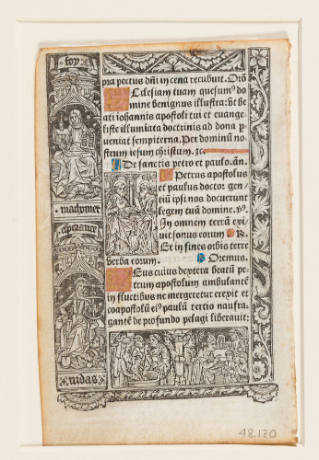 foy
pra pectus dñi in cena recubuit. Orõ
Ecclesiam tuam quesum⁹ do
mine benignus illustra: vt be
ati iohannis apostoli tui et euange
liste illuminata doctrinis ad dona p
ueniat sempiterna. Per dominũ no
strum iesum christum. ⁊c.
De sanctis petro et paulo. añ.
Petrus apostolus
et paulus doctor gen
tiũ ipsi nos docuerunt
legem tuã domine. ℣.
In omnem terrã exi
uit sonus eorum ℟.
Et in fines orbis terre
verba eorum. Oremus.
Deus cuius dextera beatũ pe
trum apostolum ambulantẽ
in fluctibus ne mergeretur erexit et
coapostolũ ei⁹ paulũ tertio naufra
gantẽ de profundo pelagi liberauit:
mahomet
esperance
iudas
48.120